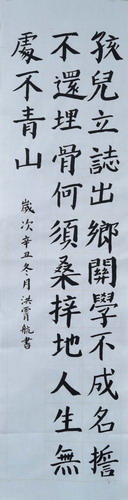 孩兒立誌出鄉關學不成名誓
不還埋骨何須桑梓地人生無
處不青山
歲次辛丑冬月洪賈航書